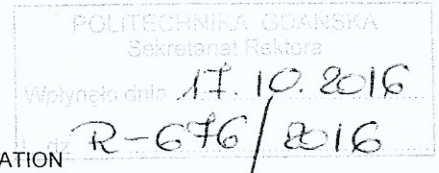 POLITECHNIKA GDAŃSKA
Sekretariat Rektora
Wpłynęło dnia 17. 10. 2016
L. dz. R-676/2016
ATION